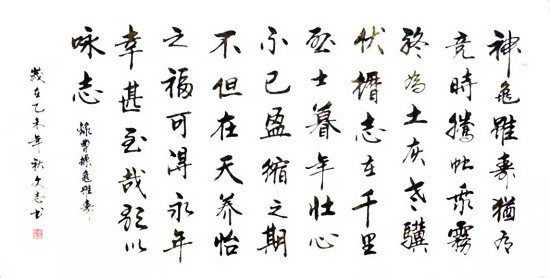 神龜雖壽猶有
竟時騰蛇乘霧
終為土灰老驥
伏櫪志在千里
烈士暮年壯心
不已盈縮之期
不但在天養怡
之福可得永年
幸甚至哉歌以
咏志
錄曹操龜雖壽
歲在乙未年秋文志书